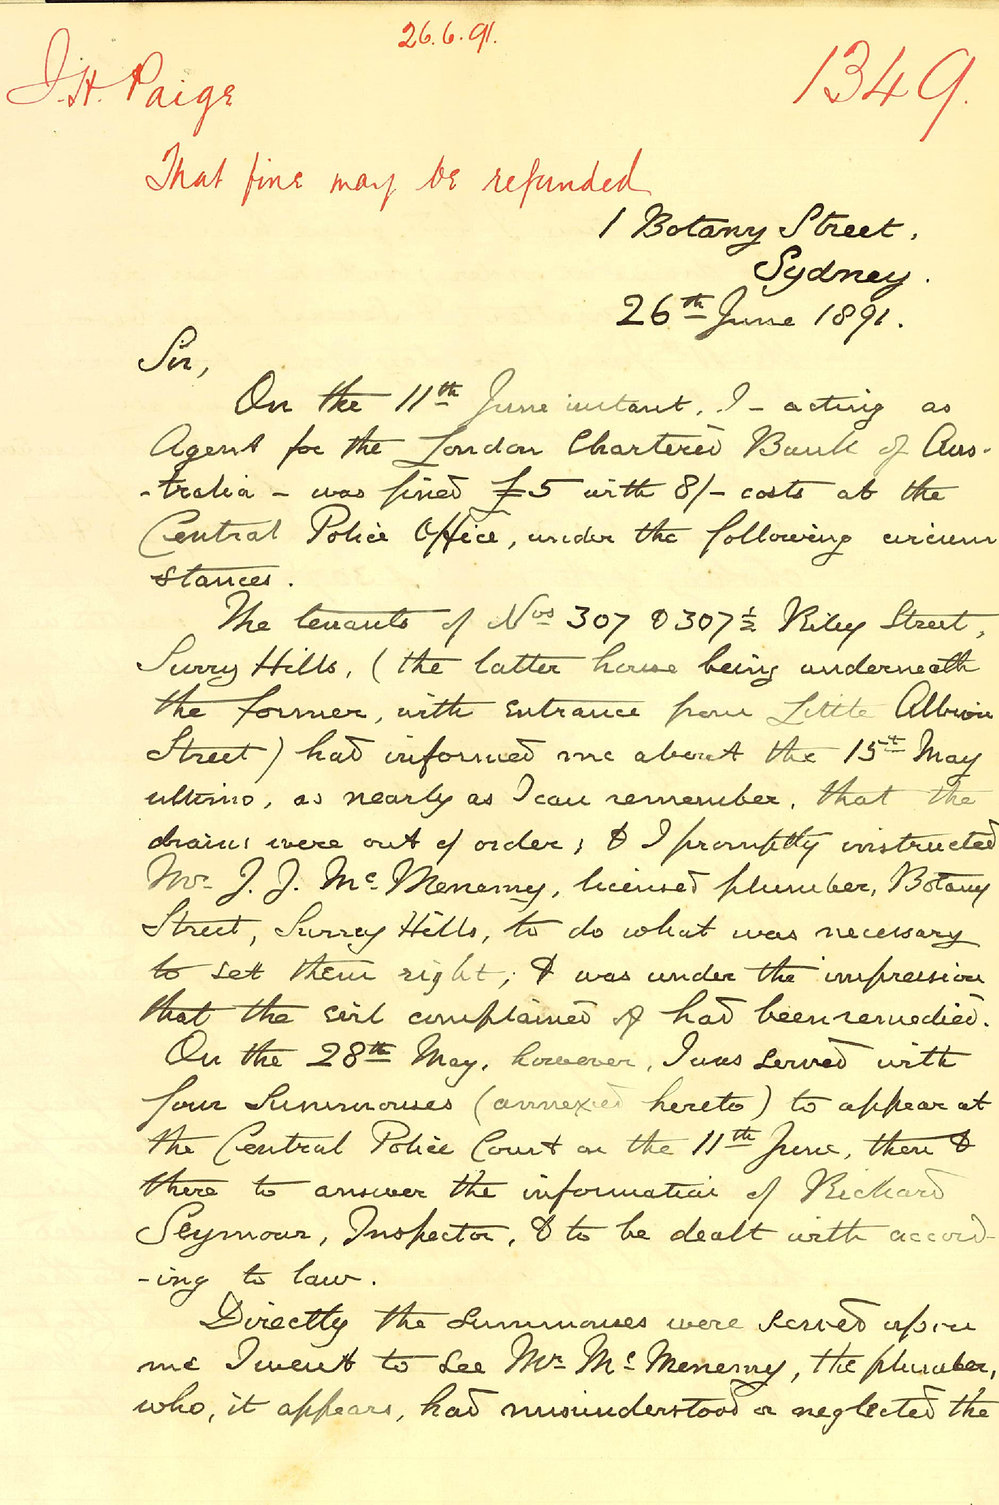 26.6.91.
J.H. Paige
1349.
That fine may be refunded
1 Botany Street,
Sydney.
26th June 1891.
Sir,
On the 11th June instant, I - acting as
Agent for the London Chartered Bank of Aus-
-tralia - was fined £5 with 8/- costs at the
Central Police Office, under the following circum
stances.
The tenants of Nos 307 & 307½ Riley Street,
Surry Hills, (the latter house being underneath
the former, with entrance from Little Albion
Street) had informed me about the 15th May
ultimo, as nearly as I can remember, that the
drains were out of order; & I promptly instructed
Mr. J. J. McMenemy, licensed plumber, Botany
Street, Surrey Hills, to do what was necessary
to set them right; & was under the impression
that the evil complained of had been remedied.
On the 28th May, however, I was served with
four Summonses (annexed hereto) to appear at
the Central Police Court on the 11th June, then &
there to answer the information of Richard
Seymour, Inspector, & to be dealt with accord-
-ing to law.
Directly the summonses were served upon
me I went to see Mr. McMenemy, the plumber,
who, it appears, had misunderstood or neglected the